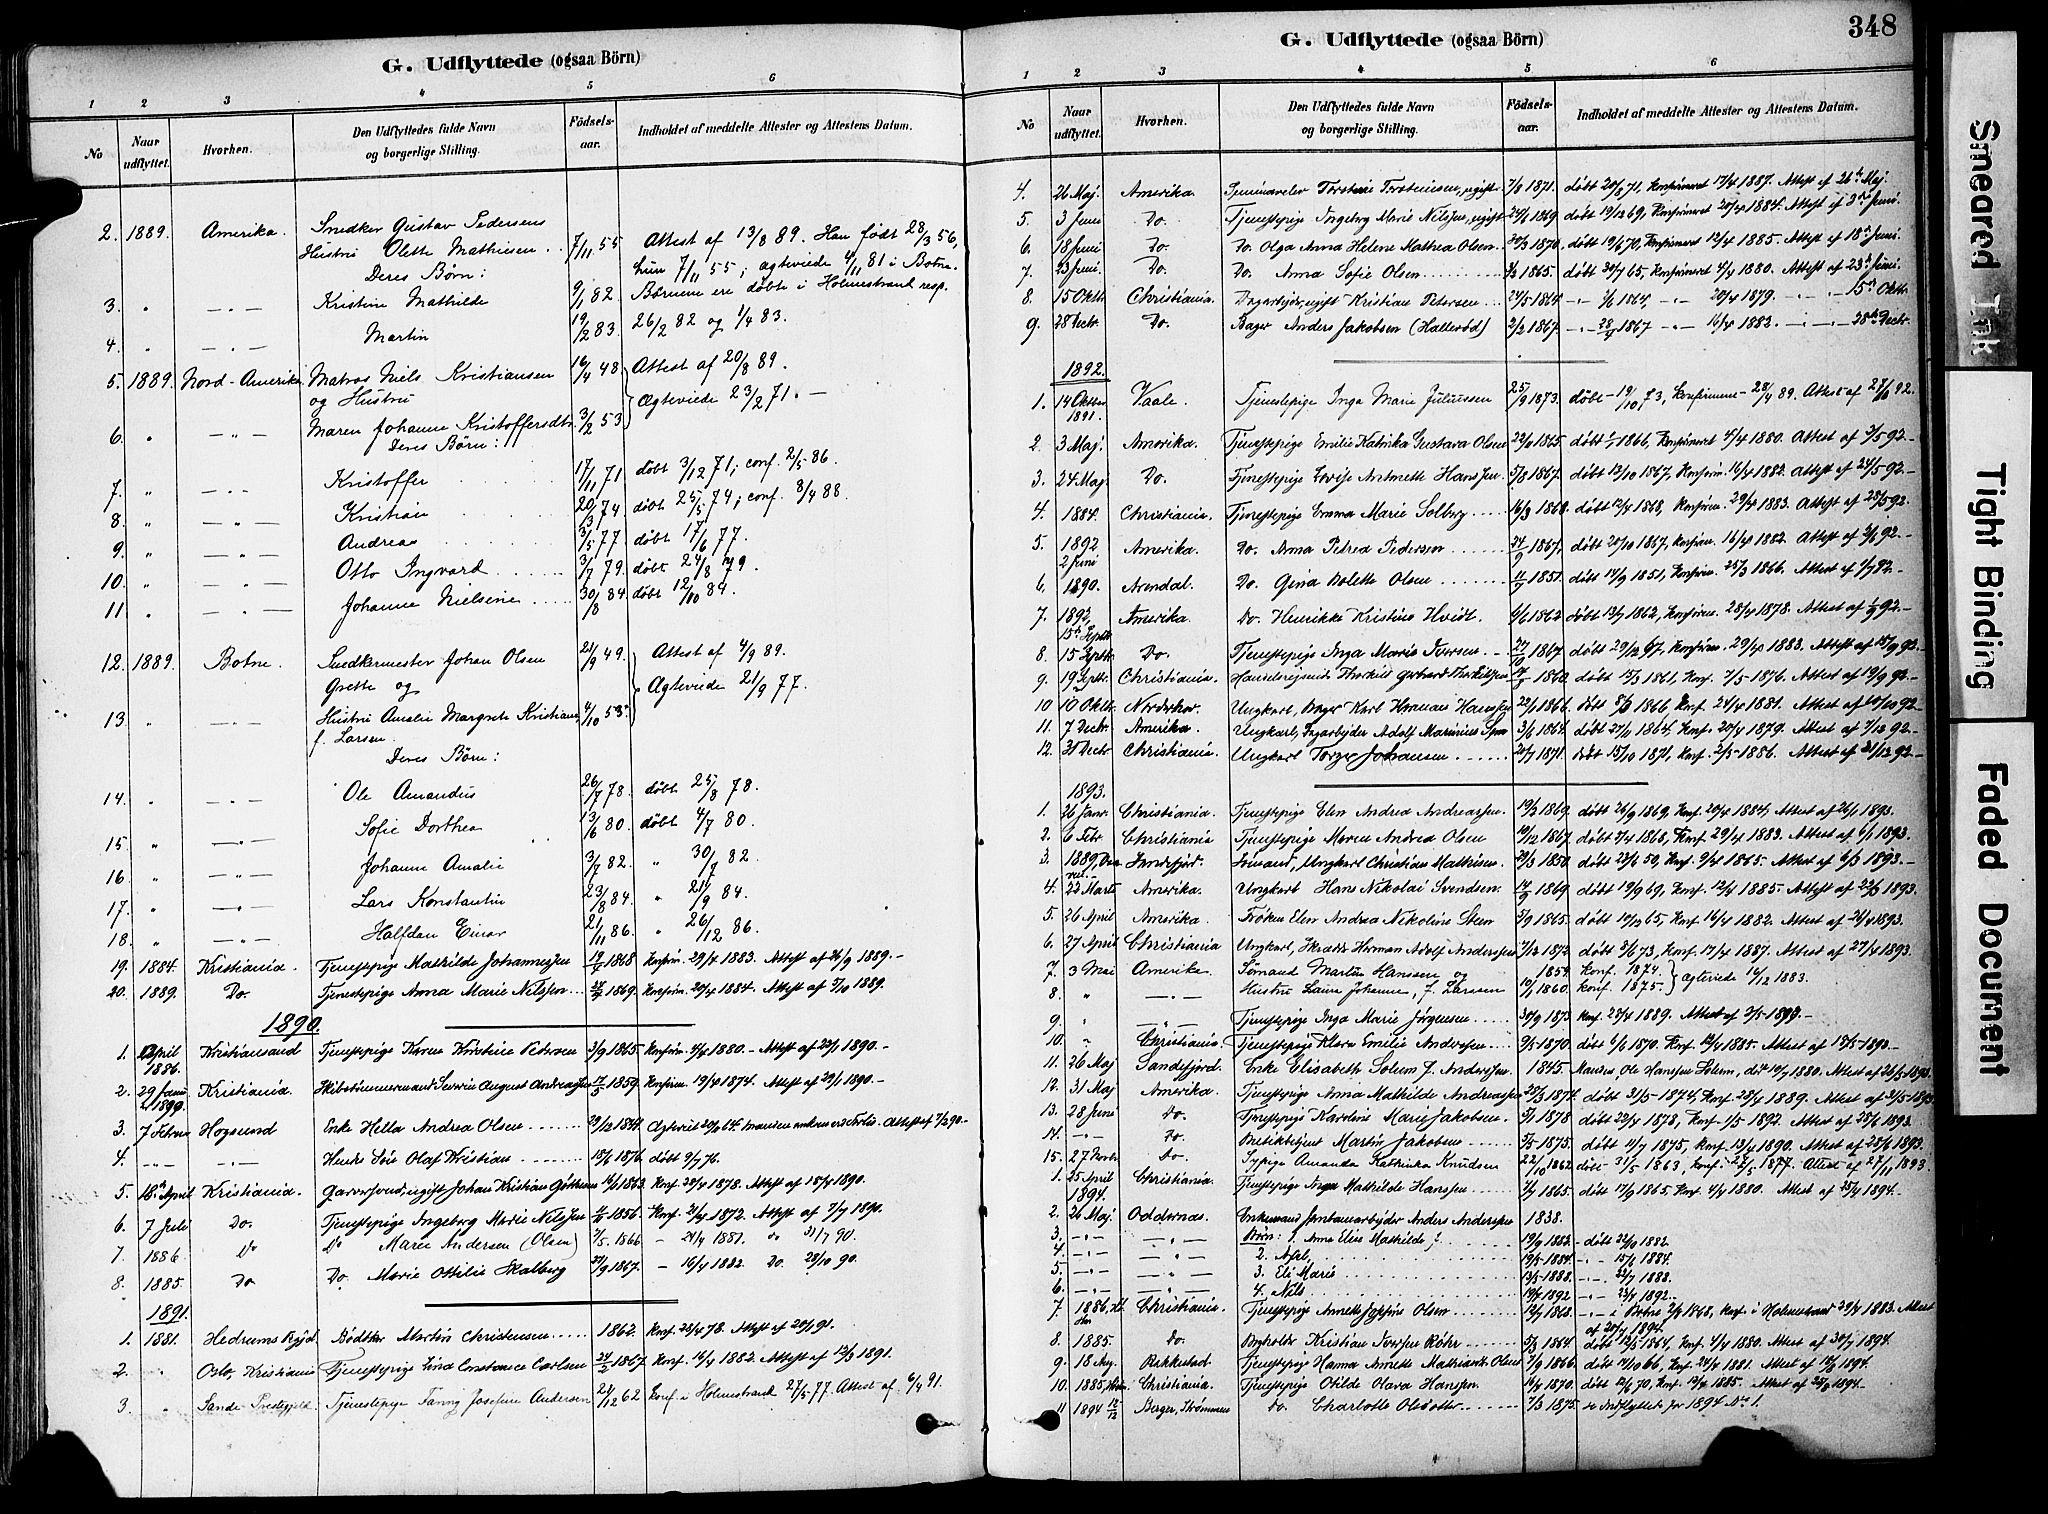 G. Udflyttede (ogsaa Börn)
1 2 3 4 5 6
No Naar udflyttet. Hvorhen. Den Udflyttedes fulde Navn og borgerlige Stilling. Födsels-aar. Indholdet af meddelte Attester og Attestens Datum.
2. 1889. Amerika. Snedker Gustav Pedersens
Hustru Olette Mathiesen 7/11 55 Attest af 13/8 89. Han født 28/3 56,
Deres Børn: hun 7/11 55; ægteviede 4/11 81 i Botne.
3. " -"- Kristine Mathilde 9/1 82 Børnene ere døbte i Holmestrand resp.
4. " -"- Martin 19/2 83. 26/2 82 og 1/4 83.
5. 1889. Nord-Amerika Matros Niels Kristiansen 16/4 48 Attest af 20/8 89.
og Hustru Ægteviede 23/2 71. -
6. " -"- Maren Johanne Kristoffersdtr. 3/2 53
Deres Børn:
7. " -"- Kristoffer 17/11 71 døbt 3/12 71; conf. 2/5 86.
8. " -"- Kristian 20/3 74 døbt 25/5 74; conf. 8/4 88.
9. " -"- Andreas 3/5 77 døbt 17/6 77.
10. " -"- Otto Ingvard 3/7 79. døbt 24/8 79.
11. " -"- Johanne Nielsine 30/8 84 døbt 12/10 84.
12. 1889. Botne. Snedkermester Johan Olsen 21/9 49. Attest af 4/9 89.
Grette og Ægteviede 21/9 77.
13. " -"- Hustru Amalie Margrete Kristiane, 4/10 53.
f. Larsen.
Deres Børn:
14. " -"- Ole Amandus 26/7 78. døbt 25/8 78.
15. " -"- Sofie Dorthea 13/6 80. døbt 4/7 80.
16. " -"- Johanne Amalie 3/7 82. " 30/7 82.
17. " -"- Lars Konstantin 23/8 84. " 21/9 84.
18. " -"- Halfdan Einar 21/11 86. " 26/12 86.
19. 1884. Kristiania. Tjenestepige Mathilde Johannessen 1868 Konfirm. 29/4 1883. Attest af 26/9 1889.-
20. 1889. Do. Tjenestepige Anna Marie Nilssen 1869. Konfirm. 20/4 1884. Attest af 3/10 1889.
1890.
1. April 1886. Kristianssand Tjenestepige Karen Kristine Pedersen 3/9 1865. Konfirm. 4/4 1880. - Attest af 1890.-
2. 29 Kristiania. Skibstømmermand Severin August Andreassen 1859. Konfirm. 19/4 1874. Attest af 29/1 1890.-
3. 7 Februar Hogsund Enke Hella Andrea Olsen 29/12 1844. Attest af 7/2 90-
4. -"- -"- Hendes Søn Olaf Kristian 15/6 1876. døbt 9/7 76.
5. 18. April Kristiania. ugift, Johan Kristian 1863. Konf. 28/4 1878. Attest af 18/4 1890.
6. 7 Juli Do. Tjenestepige Ingeborg Marie Nilssen 1856. Konf. 21/4 1872. Attest af 7/7 1890.
7. 1886. Do Do Marie Andersen (Olsen) 7/5 1866 - 24/4 1881. " 31/7 90.
8. 1885. Do Do. Marie Ottilie Skalberg 1867. - 16/4 1882 Do. 28/10 90.
1891.
1. 1881. Hedrums Bødtker Martin Christensen 1862. Konf. 28/4 78. Attest af 20/1 91.
2. Oslo, Kristiania Tjenestepige Lina Constance Carlsen 1867. Konf. 16/4 1882. Attest af 12/3 1891.
3. " Sande Prestegjeld. Tjenestepige Fanny Josefine Andersen 24/12 62 Conf. i Holmestrand 27/5 77. Attest af 6/4 91.
G. Udflyttede (ogsaa Börn)
348
1 2 3 4 5 6
No Naar udflyttet. Hvorhen. Den Udflyttedes fulde Navn og borgerlige Stilling. Födsels-aar. Indholdet af meddelte Attester og Attestens Datum.
4. 26 Maj. Amerika. Seminarelev Torstein Torstensen, ugift 7/8 1871. døbt 20/8 71, Konfirmeret 17/4 1887. Attest af 26de Maj.
5. 3 Juni Do. Tjenestepige Ingeborg Marie Nilssen, ugift 1869 døbt 19/12 69, Konfirmeret 20/4 1884. Attest af 3die Juni.
6. 18 Juni Do. Do. Olga Anna Helene Mathea Olsen 1870. døbt 19/6 70, Konfirmeret 12/4 1885. Attest af 18de Juni.
7. 23 Juni. Do. Do. Anna Sofie Olsen 1865. døbt 30/7 65, Konfirmeret 4/4 1880. Attest af 23de Juni.
8. 15 Oktbr. Christiania. ugift Kristian Petersen 24/5 1864. -"- 1864, -"- 20/4 1879. -"- 15de Oktbr.
9. 28 Decbr. Do. Bager Anders Jakobsen (Hallerød) 2/2 1867. -"- 1867 -"- 16/4 1882. -"- 28de Decbr.
1892.
1. 14 Oktbr. 1891. Vaale. Tjenestepige Inga Marie Juliussen 25/9 1873. døbt 19/10 73, Konfirmeret 28/4 89. Attest af 92.
2. 3 Maj. Amerika. Tjenestepige Emilie Katrika Gustava Olsen 1865. døbt 1866, Konfirmeret 4/4 1880. Attest af 3/5 92.-
3. 24 Maj. Do. Tjenestepige Lovise Antonette Hanssen 5/8 1867. døbt 13/10 1867, Konfirm. 16/4 1882. Attest af 24/5 92.-
4. 1884. Christiania. Tjenestepige Emma Marie Solberg 16/3 1868. døbt 12/4 1868, Konfirm. 29/4 1883. Attest af 28/5 92.
5. 1892 2 Juni Amerika. Do. Anna Petrea Pedersen 24/9 1867, døbt 20/10 1867, Konfirm. 16/4 1882. Attest af 2/6 92.-
6. 1890. Arendal. Do. Gina Bolette Olsen 1851. døbt 14/9 1851, Konfirm. 25/3 1866. Attest af 92.-
7. 1892, 15de Septbr. Amerika. Do. Henrikke Kristine Hvidt 1862 døbt 13/7 1862, Konfirm. 28/4 1878. Attest af 92.-
8. 15 Septbr. Do. Tjenestepige Inga Marie Iversen 27/10 1867. døbt 29/12 67, Konfirm. 29/4 1883. Attest af 15/9 92.-
9. 19 Septbr. Christiania. Thorkild Gerhard Thorkildsen 1860. døbt 1861, Konf. 7/5 1876. Attest af 19/9 92.-
10 10 Oktbr. Norderhov. Ungkarl, Bager Karl Herman Hanssen 1866. døbt 1866 Konf. 24/4 1881. Attest af 10/10 92-
11. 7 Decbr. Amerika. Ungkarl, Adolf Marinius 3/6 1864. døbt 27/11 1864, Konf. 20/4 1879. Attest af 7/12 92.-
12. Decbr Christiania. Ungkarl Torger Johansen 1871. døbt 15/10 1871, Konf. 2/5 1886. Attest af 21/12 92-
1893.
1. 26 Janr. Christiania. Tjenestepige Elen Andrea Andreassen 1869. døbt 26/9 1869, Konf. 20/4 1884, Attest af 26/1 1893.
2. 6 Febr. Christiania Tjenestepige Maren Andrea Olsen 19/12 1867. døbt 1868, Konf. 29/4 1883. Attest af 1893.
3. 1889, Sandefjord. Sømand, Ungkarl Christian Mathisen 1850. døbt 50, Konf. 9/4 1865. Attest af 6/3 1893.-
4. 22 Marts Amerika. Ungkarl Hans Nikolai Svendsen 1869. døbt 19/9 69, Konf. 12/4 1885. Attest af 22/3 1893.
5. 26 April Amerika. Frøken Elen Andrea Nikoline Steen 1865. døbt 65, Konf. 16/4 1882. Attest af 26/4 1893.
6. 27 April Christiania Ungkarl, Skrædder Herman Adolf Anderssen 7/12 1872. døbt 73, Konf. 17/4 1887. Attest af 27/4 1893.
7. 3 Mai Amerika. Sømand Martin Hanssen og 1859. Konf. 1874. ægteviede 16/12 1883.
8. " -"- Hustru Laura Johanne, f. Larssen 1860. Konf. 1875.
9. " -"- Tjenestepige Inga Marie Jørgensen 1873 Konf. 28/4 1889. Attest af 3/5 1893.-
10. " Christiania. Tjenestepige Klara Emilie Andersen 1870. døbt 1870. Konf. 12/4 1885. Attest af 18/5 1893.-
11. 26 Maj Sandefjord. Enke Elisabeth Solem f. Anderssen 1845. Manden, Ole Hanssen Solem, død 1880. Attest af 26/5 1893.
12. 31 Maj Amerika. Tjenestepige Anna Mathilde Andreassen 1874. døbt 31/5 1874, Konf. 28/4 1889. Attest af 31/5 1893
13. 28 Juni Do. Tjenestepige Karoline Marie Jakobsen 1878 døbt 1878, Konf. 1/5 1892. Attest af 28/6 1893.
14. -"- Do. Butikbetjent Martin Jakobsen 1875. døbt 11/7 1875, Konf. 13/4 1890. Attest af 28/6 1893.
15. 27 Novbr Do. Sypige Amanda Kathinka Knudsen 22/10 1862. døbt 31/5 1863, Konf. 1877. Attest af 27/11 1893
1. 25 April 1894. Christiania. Tjenestepige Inga Mathilde Hanssen 1865. døbt 17/9 1865, Konf. 4/4 1880. Attest af 25/4 1894.-
2. 26 Maj. Oddernes. Enkemand Anders Anderssen 1838.
3. -"- -"- Børn: 1. Anna Elise Mathilde 19/9 1882.- døbt 22/10 1882.
4. -"- -"- 2. Axel 19/5 1884. -"- 15/6 1884.
5. -"- -"- 3. Eli Marie 13/5 1888. -"- 22/7 1888.
6. -"- -"- 4. Nils 1892 -"- 1892.-
7. 1886, Christiania. Tjenestepige Annette Josefine Olsen 1868. -"- i Botne 1868, Konf. i Holmestrand 29/4 1883. Attest af 20/7 1894.
8. 1885. Do. Kristian Iversen Röhr 1864. døbt 1864, Konf. 4/4 1880. Attest af 30/7 1894.
9. 18 Aug. Rakkestad. Tjenestepige Hanna Annette Mathisen Olsen 7/9 1866. døbt 14/10 66, Konf. 24/4 1881. Attest af 1894.
10. 1885, Christiania. Tjenestepige Otilde Olava Hanssen 1870. døbt 12/6 70, Konf. 12/4 1885. Attest af 1894.-
11 1894 Berger, Strømmen Do. Charlotte Olsdotter 1875. se Indflyttede for 1894 No 1.
Smeared Ink
Tight Binding
Faded Document